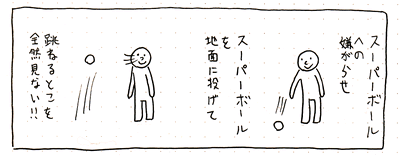 スーパーボール
への
嫌がらせ
スーパーボール
を
地面に投げて
跳ねるとこを
全然見ない!!